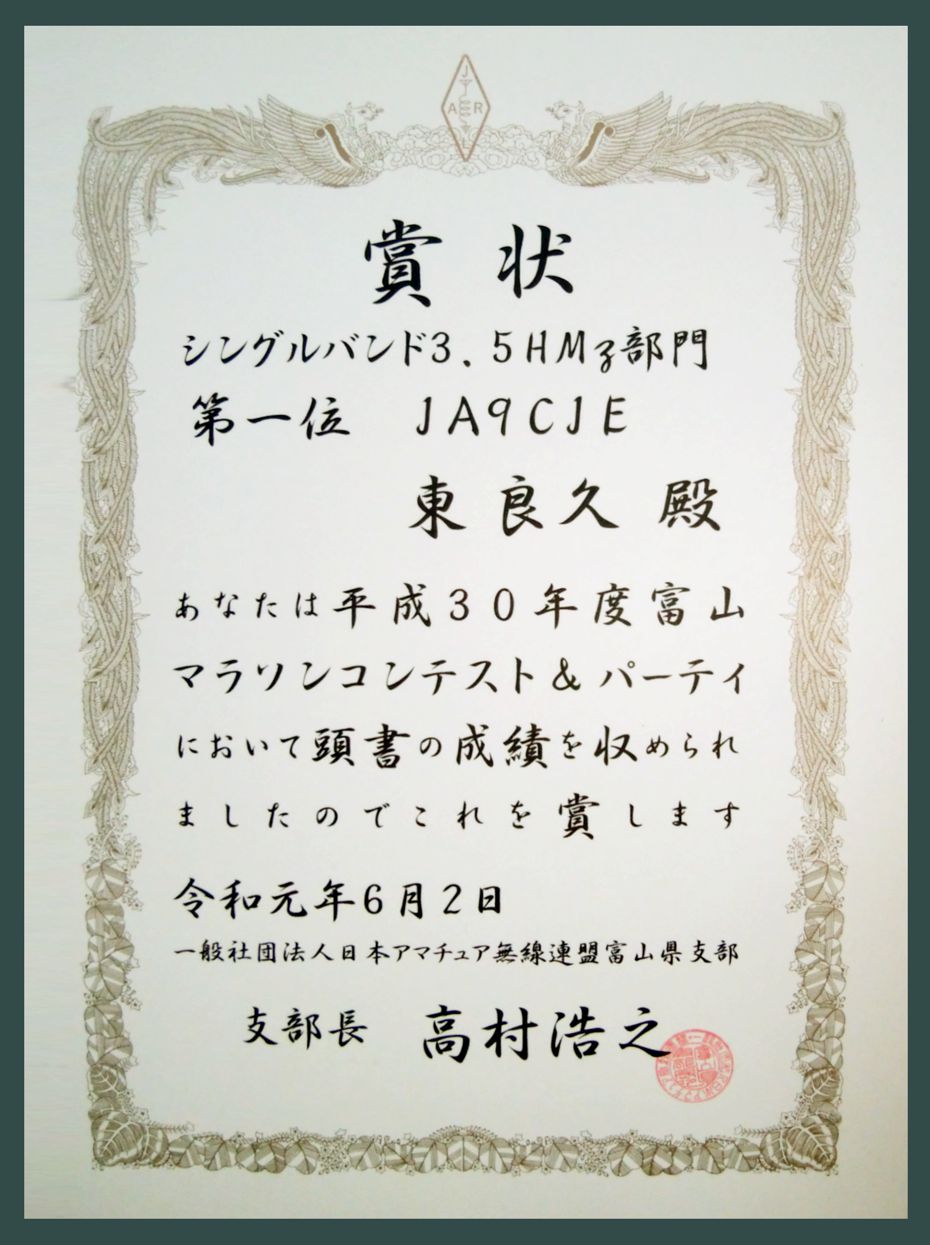 JARL
賞状
シングルバンド3.5HMz部門
第一位 JA9CJE
東良久 殿
あなたは平成30年度富山
マラソンコンテスト&パーティ
において頭書の成績を収められ
ましたのでこれを賞します
令和元年6月2日
一般社団法人日本アマチュア無線連盟富山県支部
支部長 高村浩之